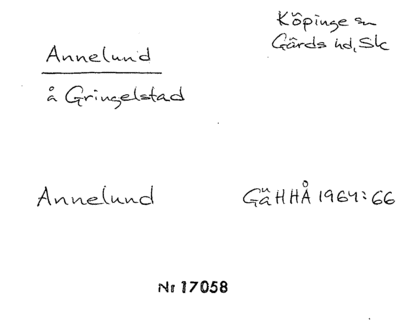 Annelund
å Gringelstad
Köpinge sn
Gärds hd, Sk
Annelund
GäHHÅ 1964:66
Nr 17058